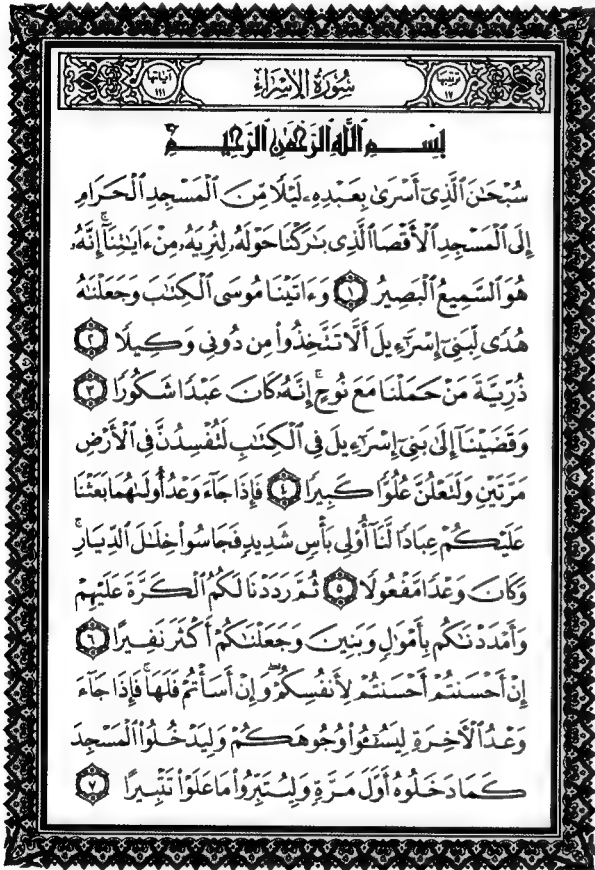 ترتيبها ١٧
سُورَةُ الإِسْرَاءِ
آياتها ١١١
بِسْمِ ٱللَّهِ ٱلرَّحْمَٰنِ ٱلرَّحِيمِ
سُبْحَٰنَ ٱلَّذِىٓ أَسْرَىٰ بِعَبْدِهِۦ لَيْلًا مِّنَ ٱلْمَسْجِدِ ٱلْحَرَامِ
إِلَى ٱلْمَسْجِدِ ٱلْأَقْصَا ٱلَّذِى بَٰرَكْنَا حَوْلَهُۥ لِنُرِيَهُۥ مِنْ ءَايَٰتِنَآ ۚ إِنَّهُۥ
هُوَ ٱلسَّمِيعُ ٱلْبَصِيرُ ١ وَءَاتَيْنَا مُوسَى ٱلْكِتَٰبَ وَجَعَلْنَٰهُ
هُدًى لِّبَنِىٓ إِسْرَٰٓءِيلَ أَلَّا تَتَّخِذُوا۟ مِن دُونِى وَكِيلًا ٢
ذُرِّيَّةَ مَنْ حَمَلْنَا مَعَ نُوحٍ ۚ إِنَّهُۥ كَانَ عَبْدًا شَكُورًا ٣
وَقَضَيْنَآ إِلَىٰ بَنِىٓ إِسْرَٰٓءِيلَ فِى ٱلْكِتَٰبِ لَتُفْسِدُنَّ فِى ٱلْأَرْضِ
مَرَّتَيْنِ وَلَتَعْلُنَّ عُلُوًّا كَبِيرًا ٤ فَإِذَا جَآءَ وَعْدُ أُولَىٰهُمَا بَعَثْنَا
عَلَيْكُمْ عِبَادًا لَّنَآ أُو۟لِى بَأْسٍ شَدِيدٍ فَجَاسُوا۟ خِلَٰلَ ٱلدِّيَارِ ۚ
وَكَانَ وَعْدًا مَّفْعُولًا ٥ ثُمَّ رَدَدْنَا لَكُمُ ٱلْكَرَّةَ عَلَيْهِمْ
وَأَمْدَدْنَٰكُم بِأَمْوَٰلٍ وَبَنِينَ وَجَعَلْنَٰكُمْ أَكْثَرَ نَفِيرًا ٦
إِنْ أَحْسَنتُمْ أَحْسَنتُمْ لِأَنفُسِكُمْ ۖ وَإِنْ أَسَأْتُمْ فَلَهَا ۚ فَإِذَا جَآءَ
وَعْدُ ٱلْءَاخِرَةِ لِيَسُۥٓـُٔوا۟ وُجُوهَكُمْ وَلِيَدْخُلُوا۟ ٱلْمَسْجِدَ
كَمَا دَخَلُوهُ أَوَّلَ مَرَّةٍ وَلِيُتَبِّرُوا۟ مَا عَلَوْا۟ تَتْبِيرًا ٧